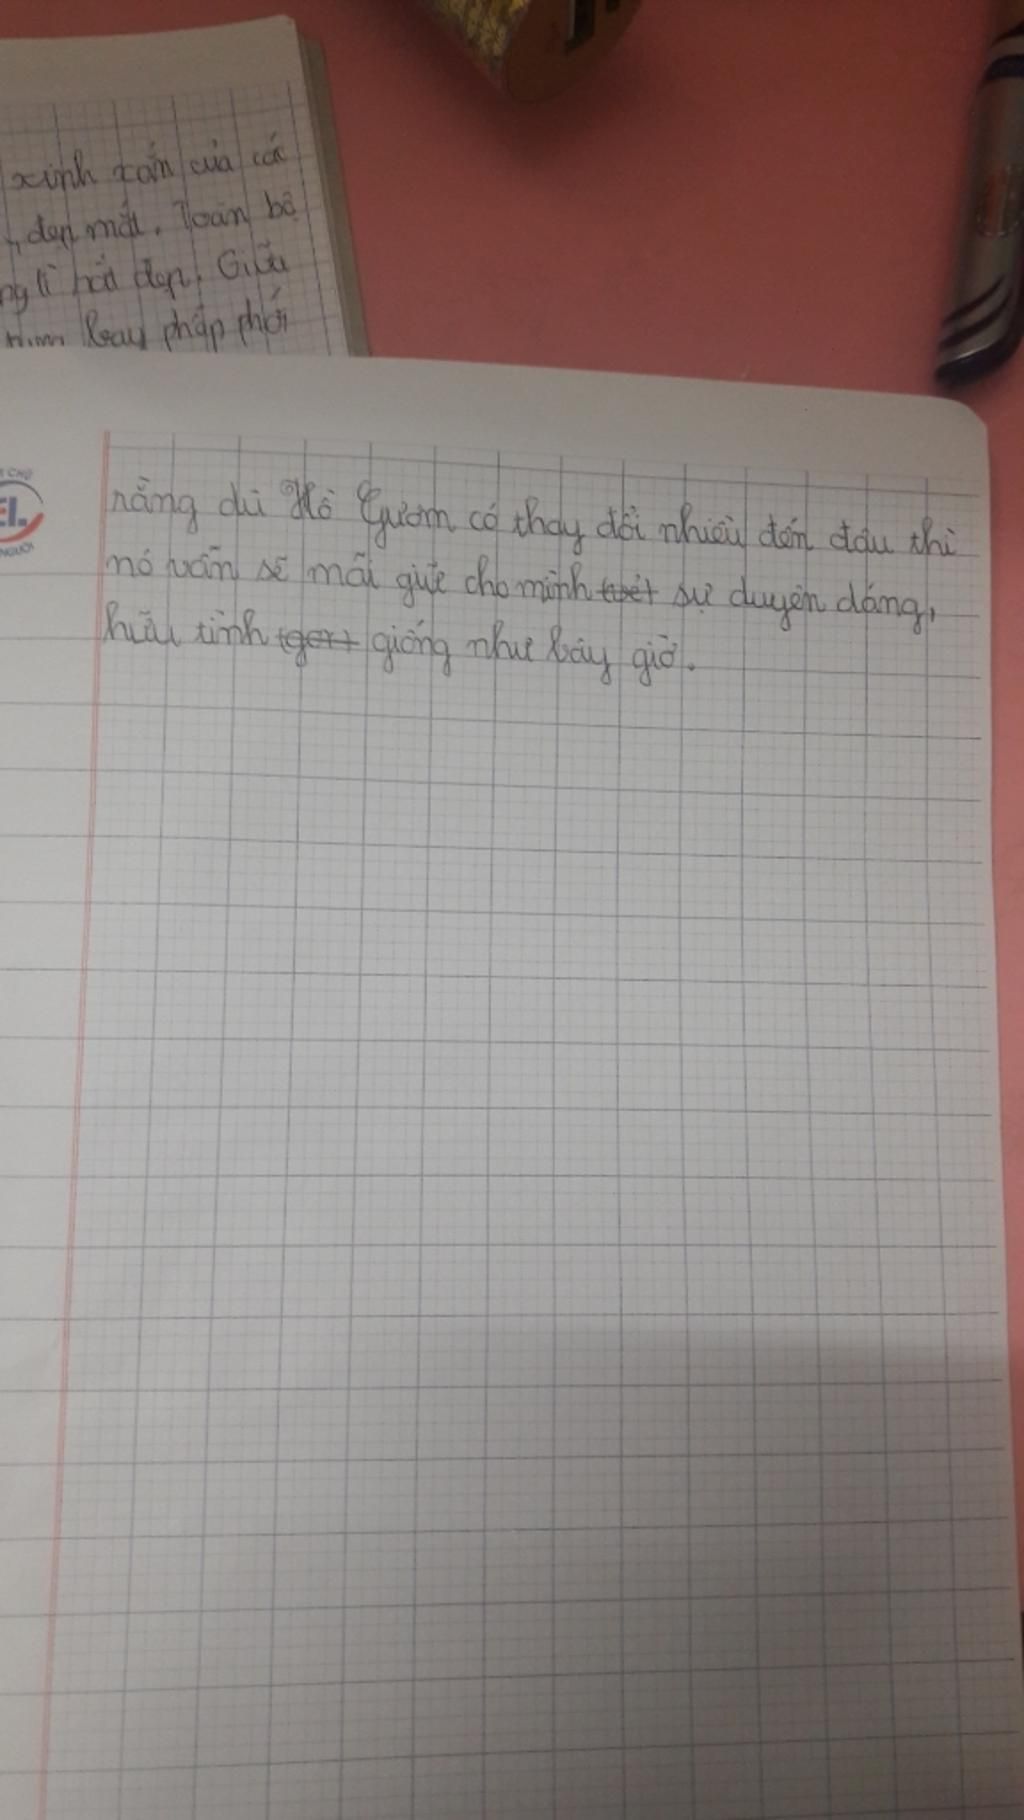 xinh xắn của các
đẹp mắt. Toàn bộ
đẹp. Giữa
bay phấp phới
CHỮ
EL
NGƯỜI
rằng dù Hồ Gươm có thay đổi nhiều đến đâu thì
nó vẫn sẽ mãi giữ cho mình sự duyên dáng,
hữu tình giống như bây giờ.